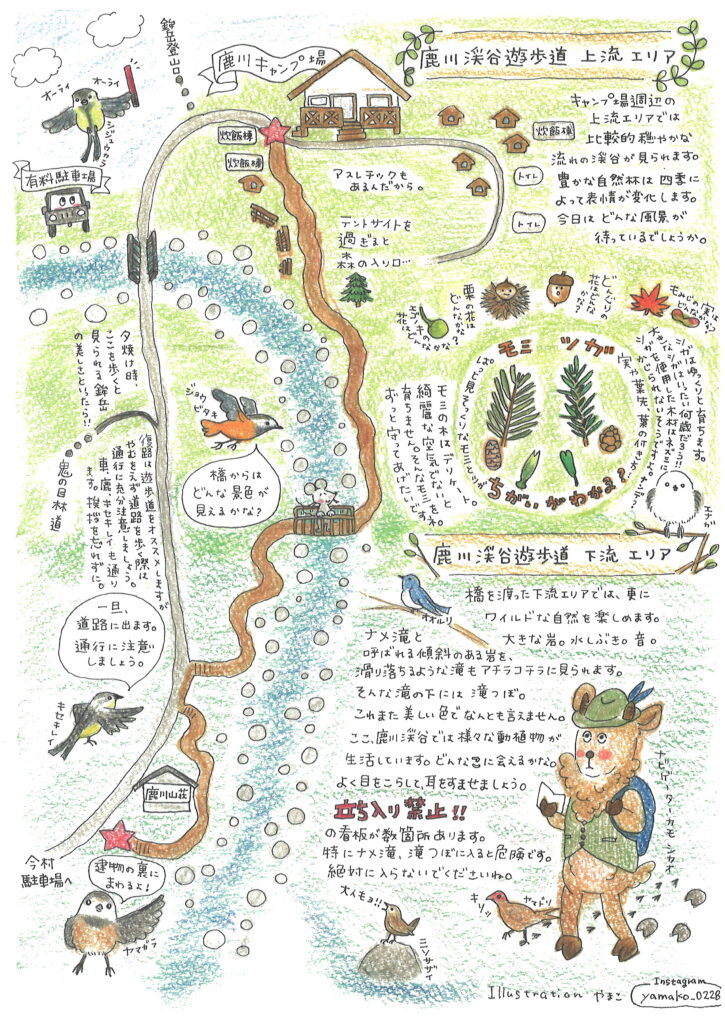 鹿川渓谷遊歩道 上流 エリア
鹿川キャンプ場
鉾岳登山口
オーライ
オーライ
シジュウカラ
有料駐車場
炊飯棟
炊飯棟
炊飯棟
トイレ
トイレ
キャンプ場周辺の
上流エリアでは
比較的穏やかな
流れの渓谷が見られます。
豊かな自然林は四季に
よって表情が変化します。
今日はどんな風景が
待っているでしょうか。
アスレチックも
あるんだから。
テントサイトを
過ぎると
森の入り口…
エゴノキの
花はどんなかな?
栗の花は
どんなかな?
どんぐりの
花はどんな
かな?
もみじの実は
どんなかな?
モミ ツガ
ぱっと見そっくりなモミとツガ
ちがいがわかる?
モミの木はデリケート。
綺麗な空気でないと
育ちません。そんなモミを
ずっと守ってあげたいです。
ツガはゆっくりと育ちます。
大きなツガはいったい何歳だろう!!
ツガを使用した木材はネズミに
かじられないそうですよ。
実や葉先、葉の付き方、ナデ?
エナガ
夕焼け時、
ここを歩くと
見られる鉾岳
の美しさといったら!!
鬼の目林道
ジョウビタキ
橋からは
どんな景色が
見えるかな?
復路は遊歩道をオススメしますが
やむをえず道路を歩く際は
通行に充分注意しましょう。
車、鹿、キセキレイも通り
ます。挨拶を忘れずに。
一旦、
道路に出ます。
通行に注意
しましょう。
キセキレイ
鹿川山荘
今村
駐車場へ
建物の裏に
まわるよ!
ヤマガラ
鹿川渓谷遊歩道 下流 エリア
オオルリ
橋を渡った下流エリアでは、更に
ワイルドな自然を楽しめます。
大きな岩。水しぶき。音。
ナメ滝と
呼ばれる傾斜のある岩を、
滑り落ちるような滝もアチラコチラに見られます。
そんな滝の下には滝つぼ。
これまた美しい色でなんとも言えません。
ここ、鹿川渓谷では様々な動植物が
生活しています。どんな に会えるかな。
よく目をこらして、耳をすませましょう。
立ち入り禁止!!
の看板が数箇所あります。
特にナメ滝、滝つぼに入ると危険です。
絶対に入らないでくださいね。
ナビゲーターカモシカオ
ミソサザイ
キリッ
ヤマドリ
Illustration やまこ
Instagram
yamako_0228